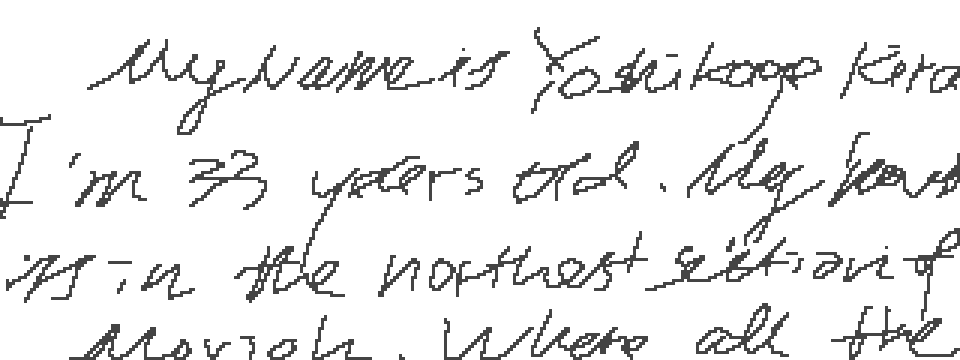 My Name is Yoshikage Kira
I'm 33 yaers old. My hous
is in the northest section of
Morioh. Where all the